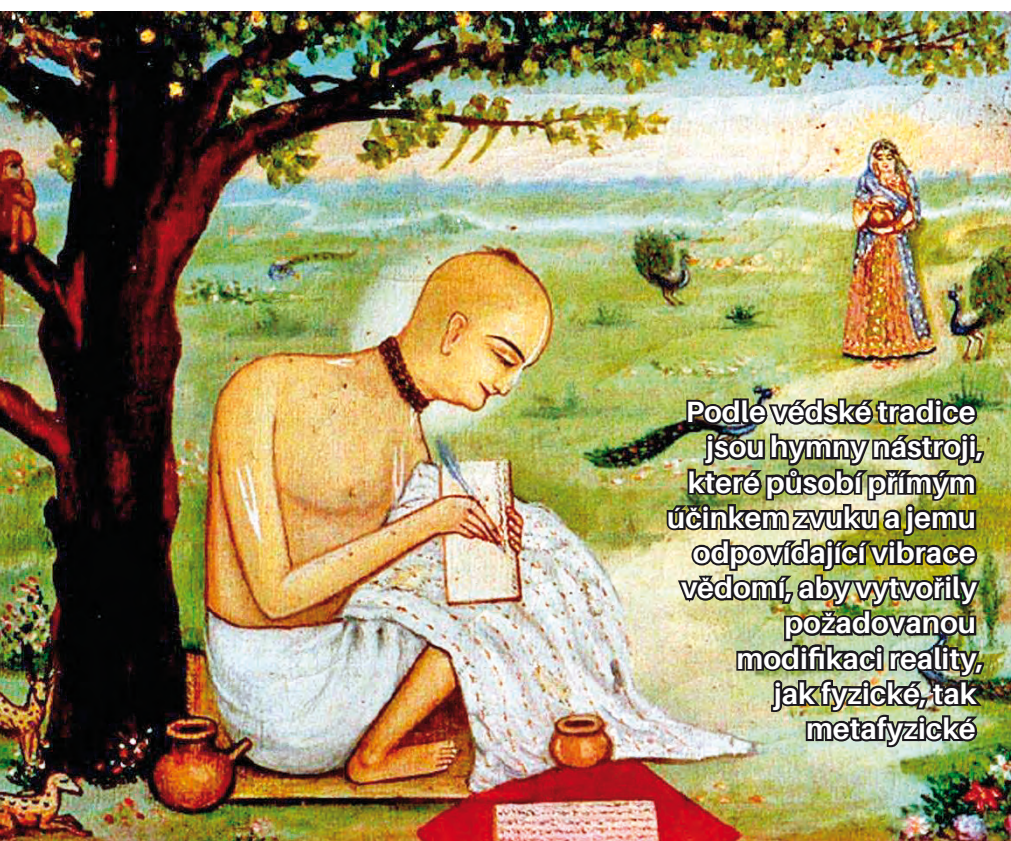 Podle védské tradice
jsou hymny nástroji,
které působí přímým
účinkem zvuku a jemu
odpovídající vibrace
vědomí, aby vytvořily
požadovanou
modifikaci reality,
jak fyzické, tak
metafyzické